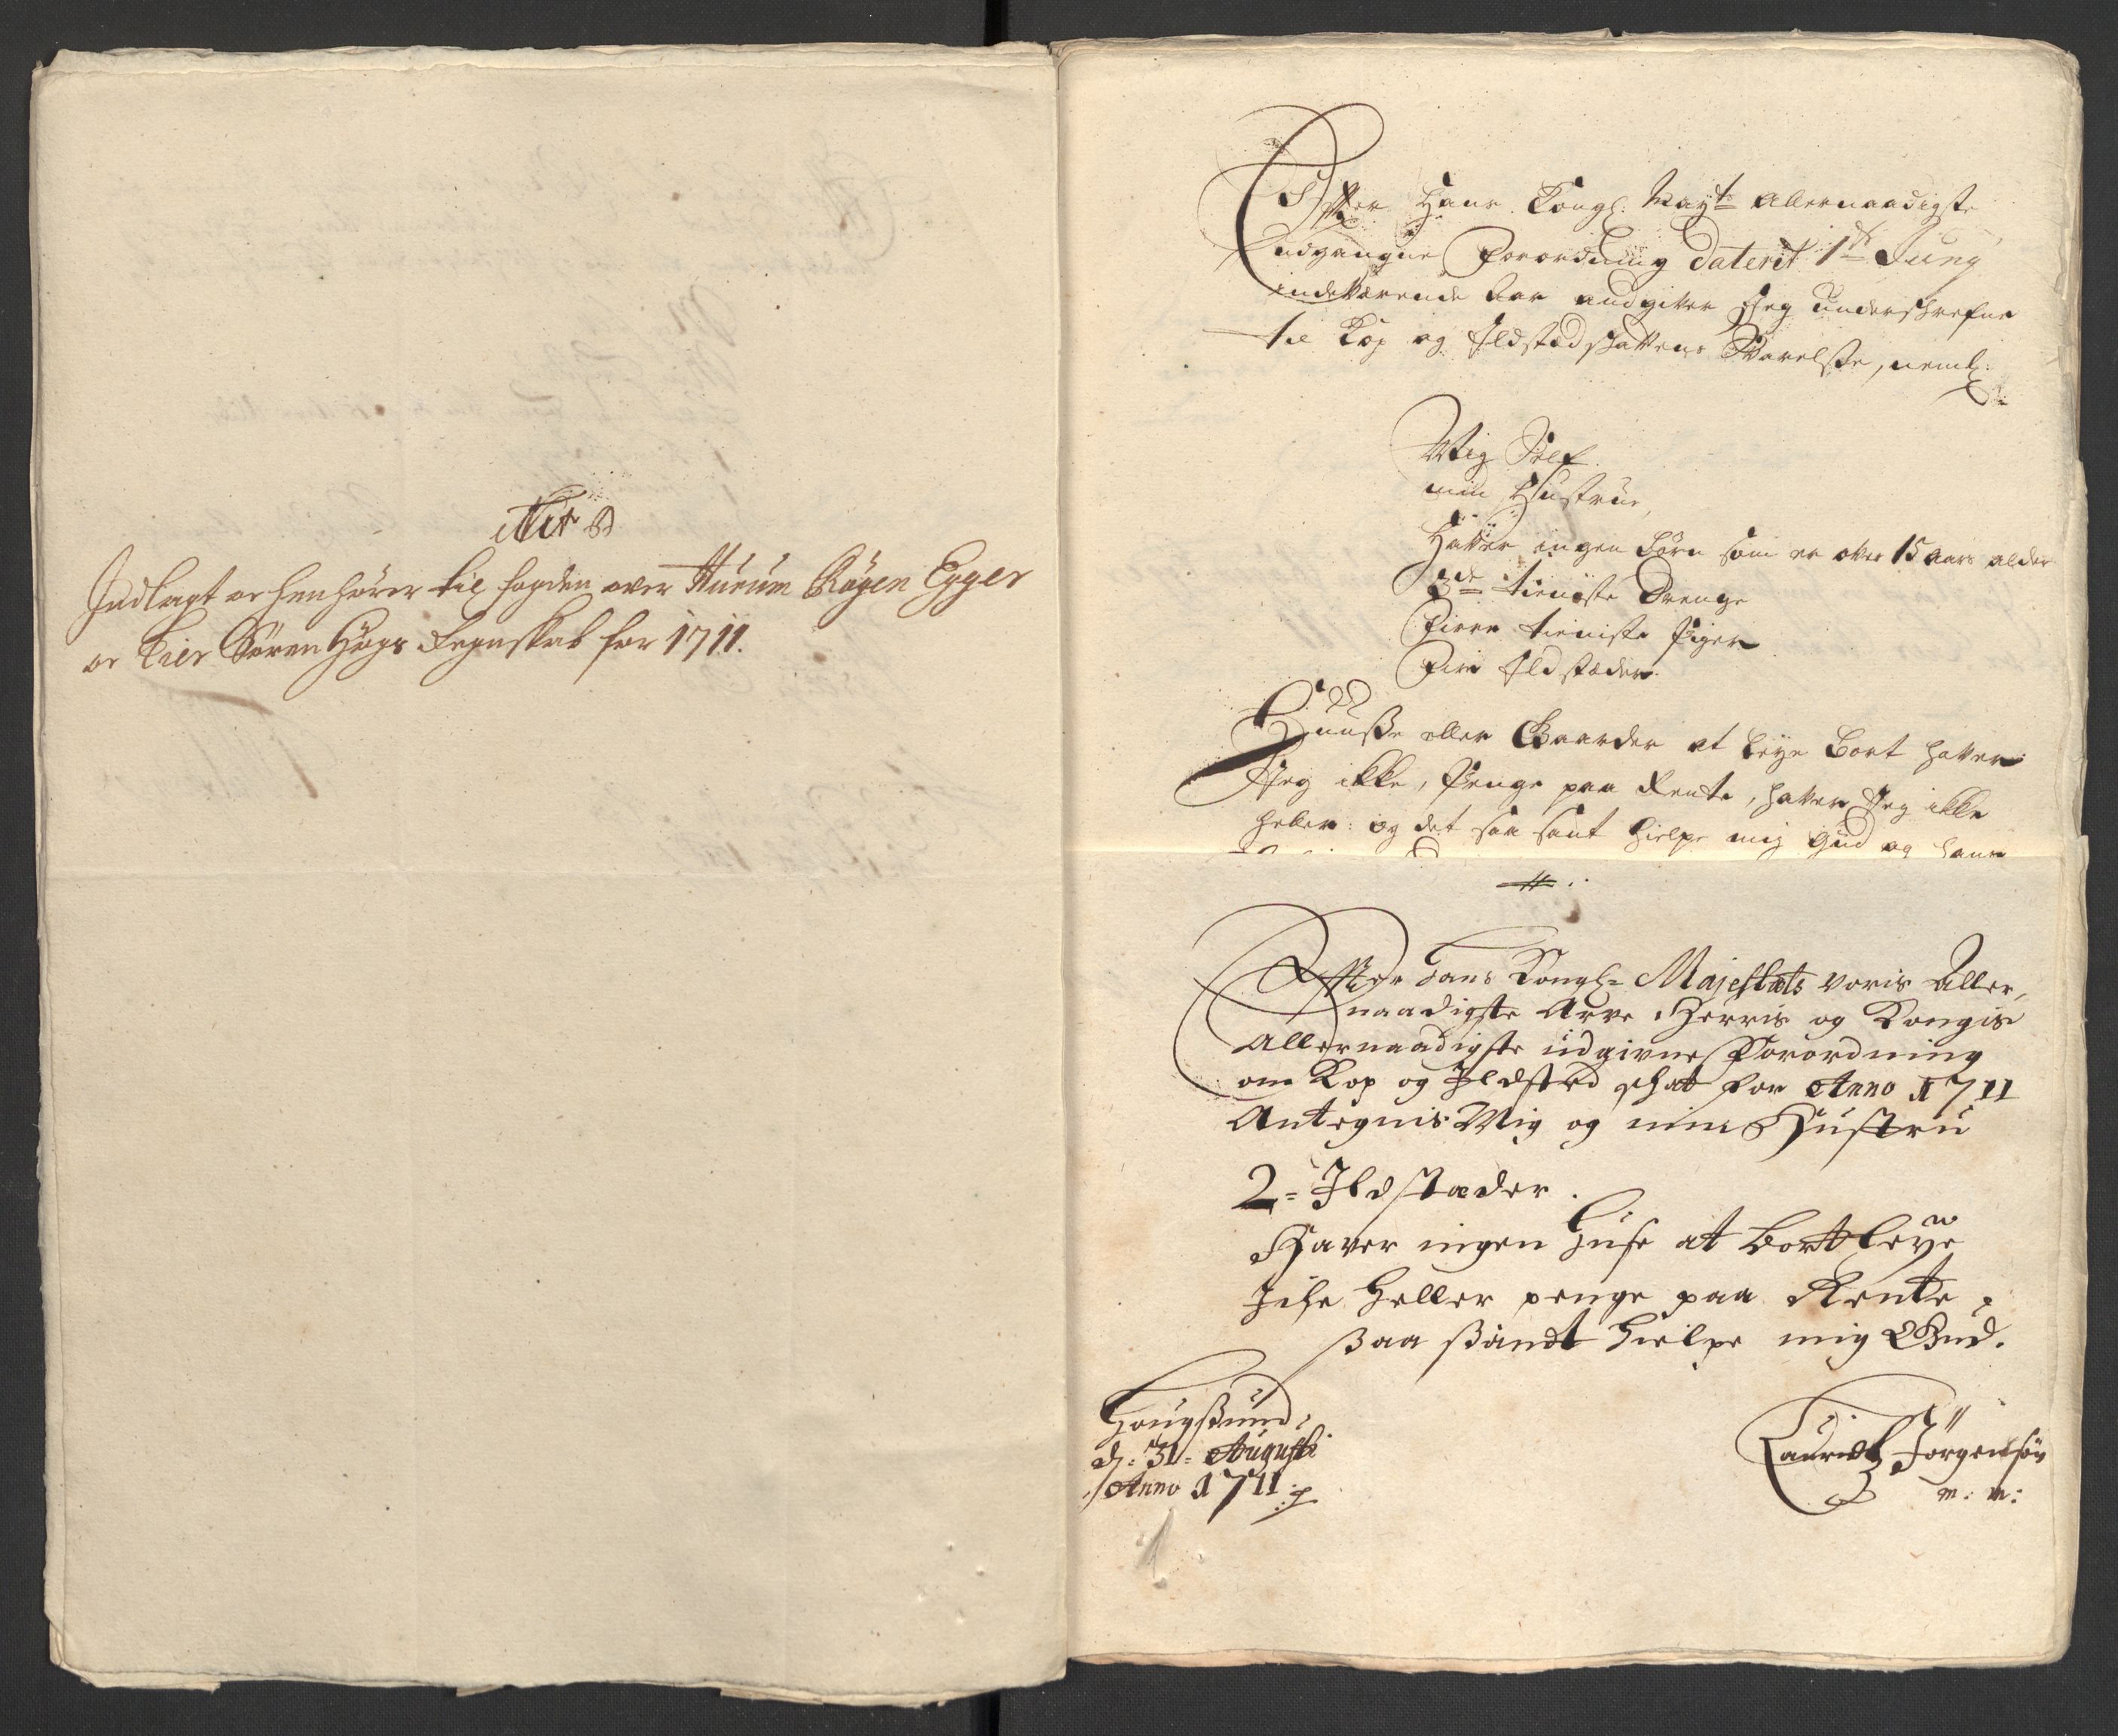 Indlagt oc henhører til fogden over Hurum Røgen Egger
oc Lier Søren Høgs Regnskab for 1711.
Effter Hans Kongl: Mayts allernaadigste
udgangne Forordning dateret 1ste Juny
indeværende aar andgiver Jeg underschrefne
til Kop og Ildstedschattens Svarelsse, neml:
Mig Self
min Hustrue,
Haver ingen børn som er over 15 aars alder
tieniste Drenge
Fiere tieniste Piger
Fire Ildstæder
Huusse eller Gaarder at leye bort haver
Jeg ikke, Penge paa Rente, haver Jeg ikke
heller: og det saa sant hielpe mig Gud og hans
Effter Hans Kongl: Majestets voris Aller,
naadigste Arve Herris og Kongis
Allernaadigste udgivne Forordning
om Kop og Ildsted schat for Anno 1711
Antegnis Mig og min Hustru
2 = Ildstæder.
Haver ingen Huse at bortleye
Iche heller penge paa Rente,
saa sandt hielpe mig Gud.
Hougssund,
d: 31 = Augusti
Anno 1711
Lauridtz Jørgensøn
m: m: